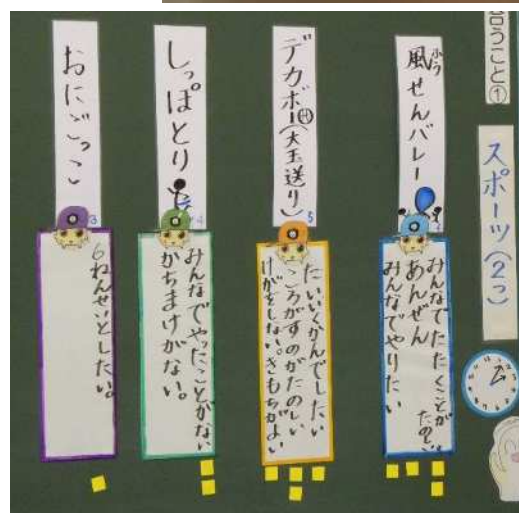 言うこと①
スポーツ(2つ)
風せんバレー
ふう
みんなでたたくことが
たのしい。
あんぜん
みんなでやりたい
デカボー(大玉送り)
5
たいいくかんでしたい
ころがすのがたのしい
けがをしない。きもちがよい
しっぽとり
4
みんなでやったことがない
かちまけがない。
おにごっこ
3
6ねんせいとしたい。